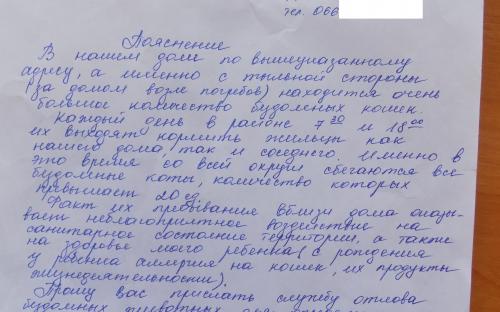 тел. 066
Пояснение
В нашем доме по вышеуказанному
адресу, а именно с тыльной стороны
(за домом возле погребов) находится очень
большое количество бездомных кошек.
Каждый день в районе 7 30 и 18 00
их выходят кормить жильцы как
нашего дома, так и соседнего. Именно в
это время со всей округи сбегаются все
бездомные коты, количество которых
превышает 20 ед.
Факт их пребывания вблизи дома оказы-
вает неблагоприятное воздействие на
санитарное состояние территории, а также
на здоровье моего ребенка (с рождения
у ребенка аллергия на кошек, их продукты
жизнедеятельности).
Прошу вас прислать службу отлова
бездомных животных для